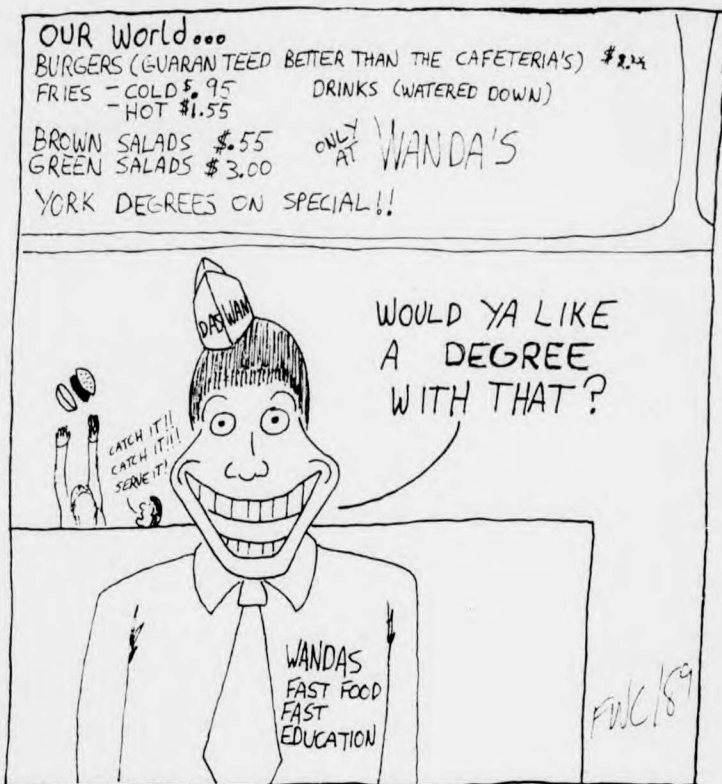 OUR World...
BURGERS (GUARANTEED BETTER THAN THE CAFETERIA'S)
FRIES - COLD $.95 DRINKS (WATERED DOWN)
- HOT $1.55
BROWN SALADS $.55 ONLY AT WANDA'S
GREEN SALADS $3.00
YORK DEGREES ON SPECIAL!!
DAS WAN
WOULD YA LIKE
A DEGREE
WITH THAT?
CATCH IT!!
CATCH IT!!!
SERVE IT!
WANDAS
FAST FOOD
FAST
EDUCATION
FWC/89